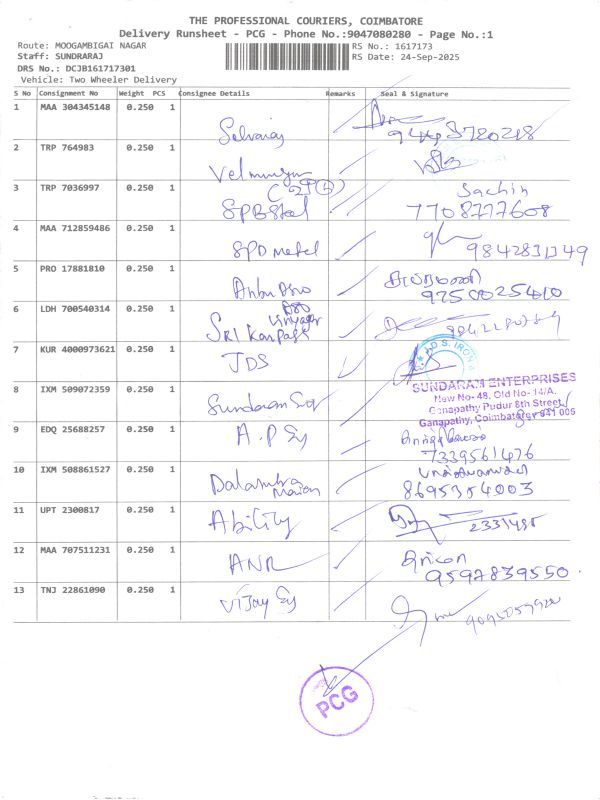 THE PROFESSIONAL COURIERS, COIMBATORE
Delivery Runsheet - PCG - Phone No.:9047080280 - Page No.:1
Route: MOOGAMBIGAI NAGAR
RS No.: 1617173
Staff: SUNDRARAJ
RS Date: 24-Sep-2025
DRS No.: DCJB161717301
Vehicle: Two Wheeler Delivery
S No Consignment No Weight PCS Consignee Details Remarks Seal & Signature
1 MAA 304345148 0.250 1
Selvaraj
2 TRP 764983 0.250 1
Velmurugan
3 TRP 7036997 0.250 1
SPB Steel Sachin
7708777608
4 MAA 712859486 0.250 1
SPD metal
5 PRO 17881810 0.250 1
9750025410
6 LDH 700540314 0.250 1
Sri Karpaga
7 KUR 4000973621 0.250 1
JDS
8 IXM 509072359 0.250 1
Sundaram
SUNDARAM ENTERPRISES
New No- 48, Old No- 14/A,
Ganapathy Pudur 8th Street,
Ganapathy, Coimbatore- 641 006
9 EDQ 25688257 0.250 1
A.P
7339561476
10 IXM 508861527 0.250 1
8695354003
11 UPT 2300817 0.250 1
Ability 2331495
12 MAA 707511231 0.250 1
ANR
9597839550
13 TNJ 22861090 0.250 1
Vijay
PCG